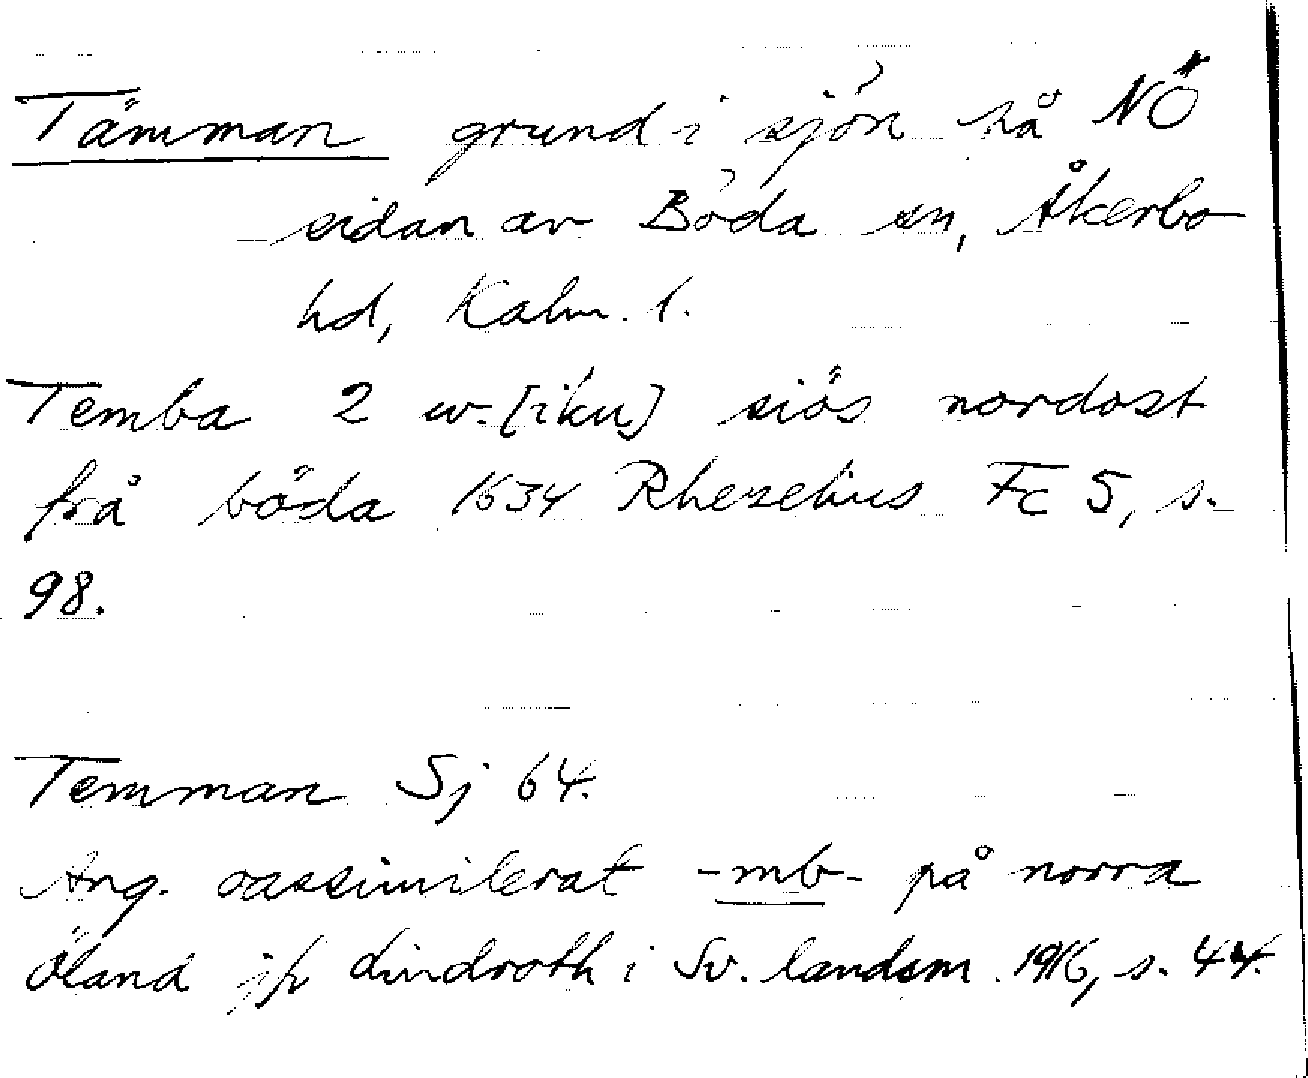 Tämman grund i sjön på NÖ
sidan av Böda sn, Åkerbo
hd, Kalm. l.
Temba 2 w.[iku] siös nordost
frå böda 1634 Rhezelius Fc 5, s.
98.
Temman Sj 64.
Ang. oassimilerat -mb- på norra
Öland jfr Lindroth i Sv. landsm. 1916, s. 44.